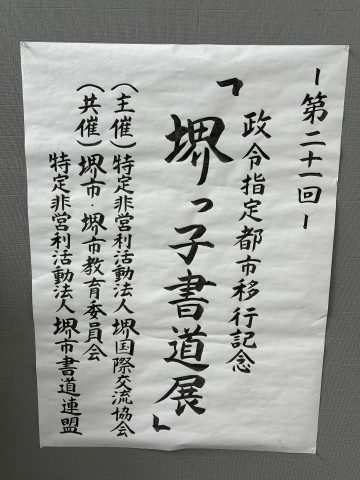 ー第二十一回ー
政令指定都市移行記念
「堺っ子書道展」
（主催）特定非営利活動法人堺国際交流協会
（共催）堺市・堺市教育委員会
特定非営利活動法人堺市書道連盟